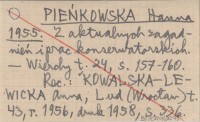 PIEŃKOWSKA Hanna
1955. Z aktualnych zagad-
nień i prac konserwatorskich.
— Wierchy t. 24, s. 157-160.
Rec.: KOWALSKA-LE-
WICKA Anna, Lud (Wrocław) t.
43, r. 1956, druk 1958, s. 336.